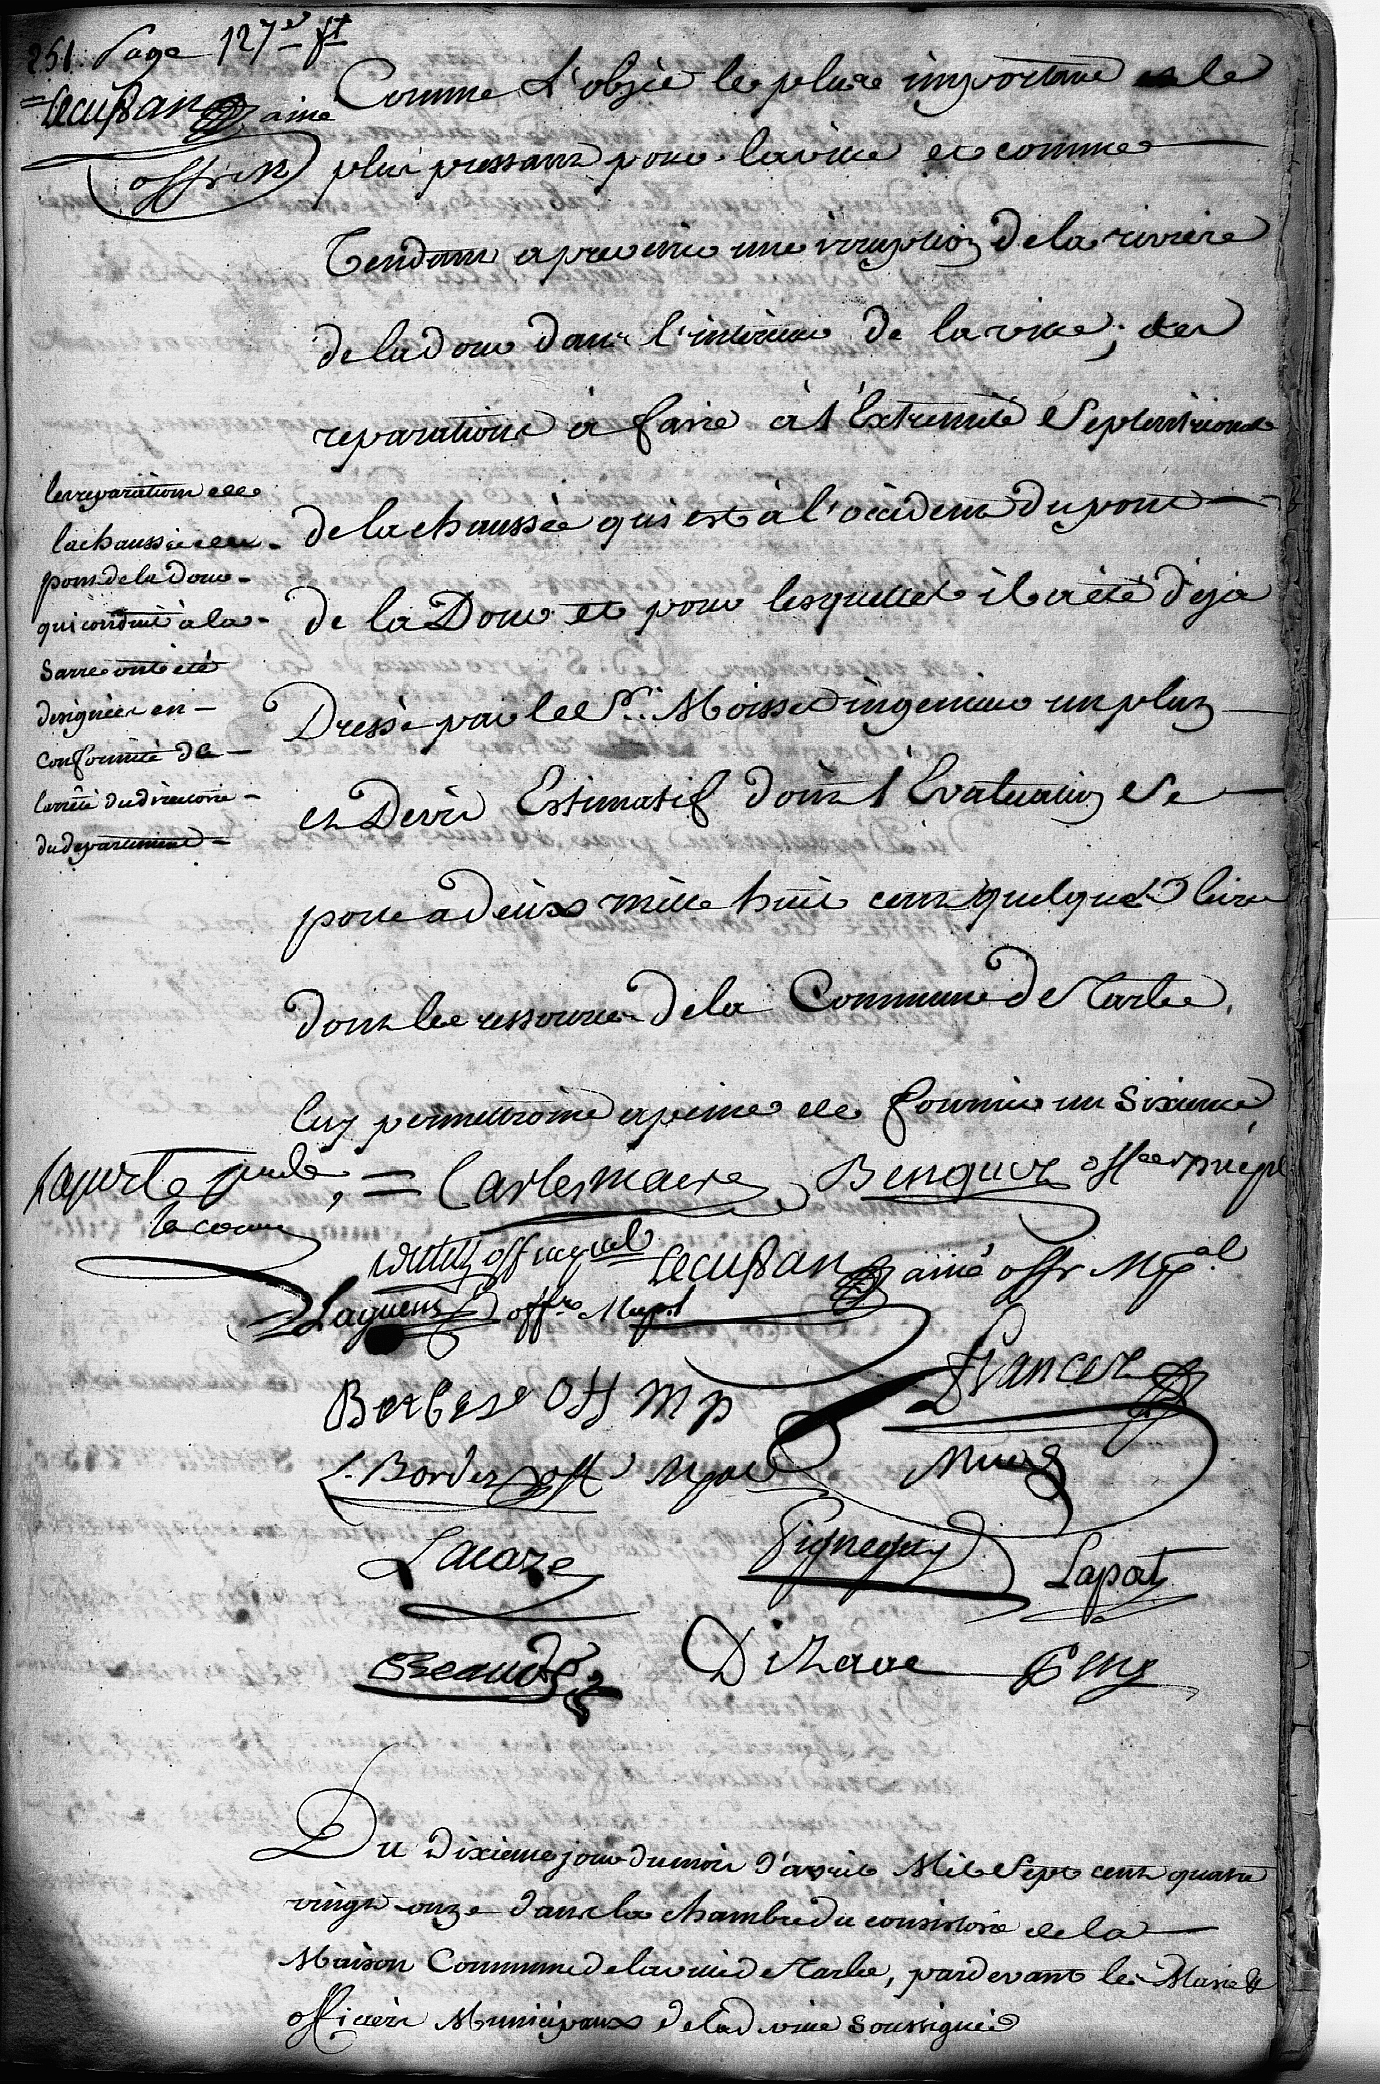 251. Page 127
Lecussan ainé
offr m
Comme L'objet le plus important et le
plus pressant pour la ville et comme
Tendant a prevenir une irruption de la riviere
de ladour dans l'interieur de la ville; des
reparations à faire à l'Extremité Septentrionale
de la chaussée qui est à l'occident du pont
de la Dour et pour lesquelles il a été déja
Dressé par le Sr. Moisset ingenieur un plan
et Devis Estimatif dont l'Evaluation Se
porte a deux mille huit cent quelques livres
dont les ressources de la Commune de Tarbe,
luy permettroint a peine de fournir un Sixieme
les reparations de
la chaussée du
pont de la Dour
qui conduit à la
Sarre ont été
designées en
conformité de
l'arrêté du directoire
du departement
Laporte = Carles maire Bengues off
Lecussan ainé offr Mpal
Laguens offr Mupl
Berbese Off Mp Francez
L. Bordes off Mpal
Lacaze Pigneguy Lapart
Dizaac
Du Dixieme jour du mois d'avril Mil Sept cent quatre
vingt onze dans la chambre du consistoire de la
Maison Commune de la ville de Tarbe, pardevant les Maire &
officiers Municipaux de lad ville Soussignés